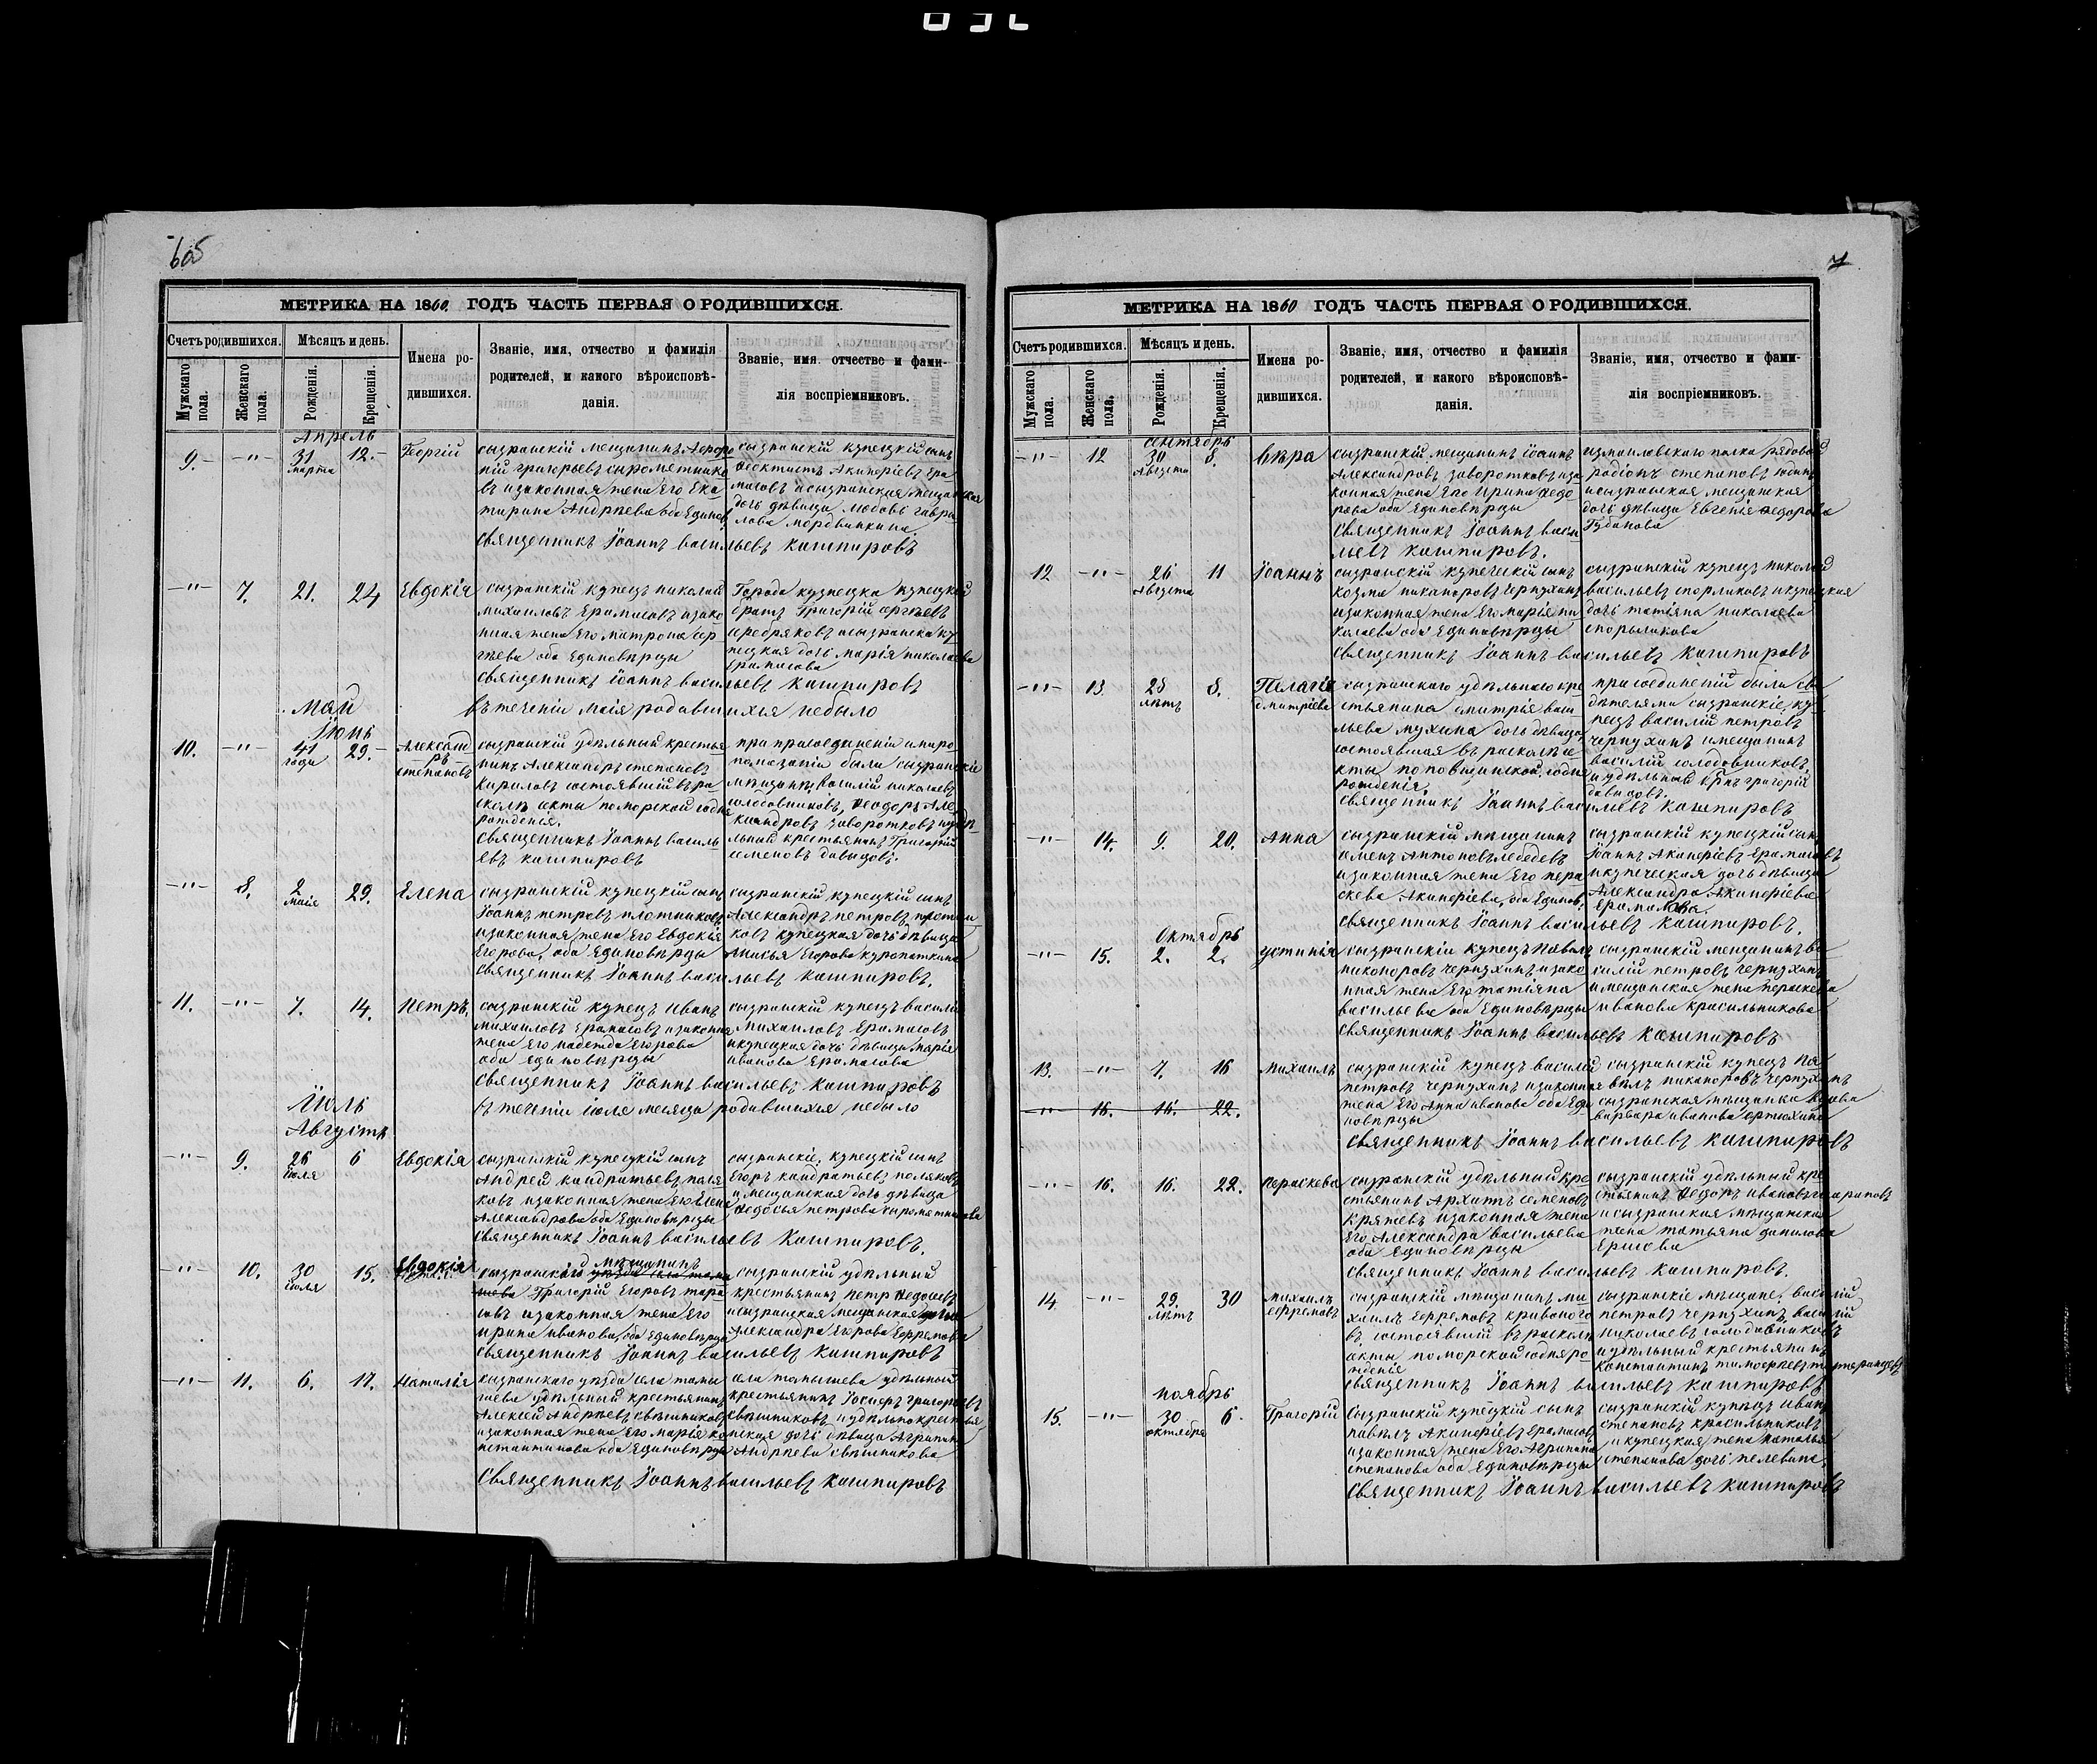 605
МЕТРИКА НА 1860 ГОДЪ ЧАСТЬ ПЕРВАЯ О РОДИВШИХСЯ.
Счетъ родившихся.
Мѣсяцъ и день.
Мужскаго пола.
Женскаго пола.
Рожденія.
Крещенія.
Имена ро-
дившихся.
Званіе, имя, отчество и фамилія
родителей, и какого вѣроисповѣ-
данія.
Званіе, имя. отчество и фами-
лія воспріемниковъ.
Апрель
9. -"- 31 марта 12. Георгій
сызранскій мещанинъ
ній григорьевъ сыромятнико
въ изаконная жена Его Ека
тирина Андрѣева оба Единов
сызранскій купецкій сынъ
Феоктистъ Акинфіевъ Ера
масовъ исызранская мещанская
дочь дѣвица любовь гаври
лова мордвинкина
священникъ Іоаннъ васильевъ кашпировъ
-"- 7. 21. 24 Евдокія
сызранскій купецъ николай
михаиловъ Ерамасовъ изако
нная жена Его матрона сер
гѣева оба Единовѣрцы
Города кузнецка купецкій
братъ Григорій сергѣевъ
серебряковъ исызранска ку
пецкая дочь марія николаева
Ерамасова
священникъ іоаннъ васильевъ кашпировъ
май
въ теченіи маія родившихся небыло
Іюнь
10. -"- 41 года 29. Александ
ръ
степановъ
сызранскій удѣльный крестья
нинъ Александръ степановъ
кириловъ состоявшій въра
сколѣ секты поморской годня
рожденія.
священникъ Іоаннъ василь
евъ кашпировъ
при присоединеніи имиро
помазаніи были сызранскіе
мѣщанинъ василій николаевъ
солодовниковъ, Феодоръ Але
ксандровъ заворотковъ иудѣ
льный крестьянинъ Григорій
семеновъ давыдовъ.
-"- 8. 2 маія 29. Елена
сызранскій купецкій сынъ
Іоаннъ петровъ плотниковъ
изаконная жена Его Евдокія
Егорова, оба Единовѣрцы
сызранскій купецкій сынъ
Александръ петровъ плотни
ковъ купецкая дочь дѣвица
Анисья Егорова куропаткина
священникъ Іоаннъ васильевъ кашпировъ.
11. -"- 7. 14. Петръ.
сызранскій купецъ иванъ
михаиловъ Ерамасовъ изаконная
жена Его надежда Егорова
оба единовѣрцы
сызранскій купецъ василій
михаиловъ Ерамасовъ
икупецкая дочь дѣвица марія
иванова Ерамасова
священникъ Іоаннъ васильевъ кашпировъ
Іюль
въ теченіи іюля месяца родившихся небыло
Августъ
-"- 9. 26 іюля 6 Евдокія
сызранскій купецкій сынъ
Андрей кандратьевъ поля
ковъ изаконная жена Его Елена
Александрова оба Единовѣрцы
сызранскіе, купецкій сынъ
Егоръ кандратьевъ поляковъ
имещанская дочь дѣвица
Федосья петрова сыромятникова
священникъ Іоаннъ васильевъ кашпировъ.
-"- 10. 30 іюля 15. Евдокія
мѣщанинъ
Григорій Егоровъ тара
совъ изаконная жена Его
ирина иванова, оба Единовѣрцы
сызранскій удѣльный
крестьянинъ петр Федосеевъ
исызранская мещанская
Александра Егорова Ефремова
священникъ Іоаннъ васильевъ кашпировъ
-"- 11. 6. 17. Наталія
сызранскаго уѣзда села томы
шева удѣльный крестьянинъ
Алексѣй Андрѣевъ свѣшниковъ
изаконная жена Его марія ко
нстантинова оба Единовѣрцы
села томышева удѣльный
крестьянинъ Іосифъ григорьевъ
свѣшниковъ иудѣльнокрестья
нская дочь дѣвица Агрипина
Андрѣева свѣшникова
Священникъ Іоаннъ васильевъ кашпировъ
7
МЕТРИКА НА 1860 ГОДЪ ЧАСТЬ ПЕРВАЯ О РОДИВШИХСЯ.
Счетъ родившихся.
Мѣсяцъ и день.
Мужскаго пола.
Женскаго пола.
Рожденія.
Крещенія.
Имена ро-
дившихся.
Званіе, имя, отчество и фамилія
родителей, и какого вѣроисповѣ-
данія.
Званіе, имя, отчество и фами-
лія воспріемниковъ.
сентябрь
-"- 12 30 августа 8. Вѣра
сызранскій мещанинъ іоаннъ
Александровъ заворотковъ иза
конная жена Его Ирина Федо
рова оба Единовѣрцы
священникъ Іоаннъ васи
льевъ кашпировъ.
измаиловскаго полка рядовой
родіонъ степановъ
исызранская мещанская
дочь дѣвица Евгенія Федорова
Губанова
12 -"- 26 августа 11 Іоаннъ
сызранскій купеческій сынъ
козма никаноровъ чернухинъ
изаконная жена Его марія ни
колаева оба Единовѣрцы
сызранскій купецъ николай
васильевъ спорыковъ икупецкая
дочь татіяна николаева
спорыкова
священникъ Іоаннъ васильевъ кашпировъ
-"- 13. 28 лѣтъ 8. Пелагія
дмитріева
сызранскаго удѣльнаго кре
стьянина дмитрія васи
льева мухина дочь дѣвица
состоявшая въ расколѣ се
кты поповщинской годня
рожденія.
присоединеній были сви
дѣтелями сызранскіе, ку
пецъ василій петровъ
чернухинъ имещанинъ
василій солодовниковъ
иудѣльный крнъ григорій
давыдовъ.
священникъ Іоаннъ васильевъ кашпировъ
-"- 14. 9. 20. Анна
сызранскій мѣщанинъ
семенъ Антоновъ лебедевъ
изаконная жена Его пера
скева Акинфіева, оба Единов:
сызранскій купецкій сынъ
Іоаннъ Акинфіевъ Ерамасовъ
икупеческая дочь дѣвица
Александра Акинфіева
Ерамасова.
священникъ Іоаннъ васильевъ кашпировъ.
Октябрь
-"- 15. 2. 2. устинія
сызранскій купецъ Павелъ
никоноровъ чернухинъ изако
нная жена Его татіяна
васильева оба Единовѣрцы
сызранскій мещанинъ ва
силій петровъ чернухинъ
имещанская жена пераскева
иванова красильникова
священникъ Іоаннъ васильевъ кашпировъ
13. -"- 7. 16 михаилъ
сызранскій купецъ василій
петровъ чернухинъ изаконная
жена Его Анна иванова оба Еди
новѣрцы
сызранскій купецъ Па
велъ никаноровъ чернухинъ
сызранская мѣщанка вдова
варвара иванова Артюхина
-"- 16. 16. 22.
священникъ Іоаннъ васильевъ кашпировъ
-"- 16. 16. 22. перaскева
сызранскій удѣльный кре
стьянинъ Архипъ семеновъ
кряжевъ изаконная жена
Его Александра васильева
оба Единовѣрцы
сызранскій удѣльный кре
стьянинъ Федоръ ивановъ
исызранская мѣщанская
жена татьяна данилова
Ершова
священникъ Іоаннъ васильевъ кашпировъ.
14 -"- 29. лѣтъ 30 михаилъ
ефремовъ
сызранскій мѣщанинъ ми
хаилъ Ефремовъ кривоного
въ состоявшій въ расколѣ
секты поморской годня ро
жденія
сызранскіе мѣщане, василій
петровъ чернухинъ, василій
николаевъ солодовниковъ
иудѣльный крестьянинъ
константинъ тимофѣевъ
священникъ Іоаннъ васильевъ кашпировъ
ноябрь
15. -"- 30 октября 6. Григорій
Сызранскій купецкій сынъ
павелъ Акинфіевъ Ерамасовъ
изаконная жена Его Агрипина
степанова оба Единовѣрцы
сызранскій купецъ иванъ
степановъ красильниковъ
и купецкая жена наталья
степанова дочь пелевина.
священникъ Іоаннъ васильевъ кашпировъ